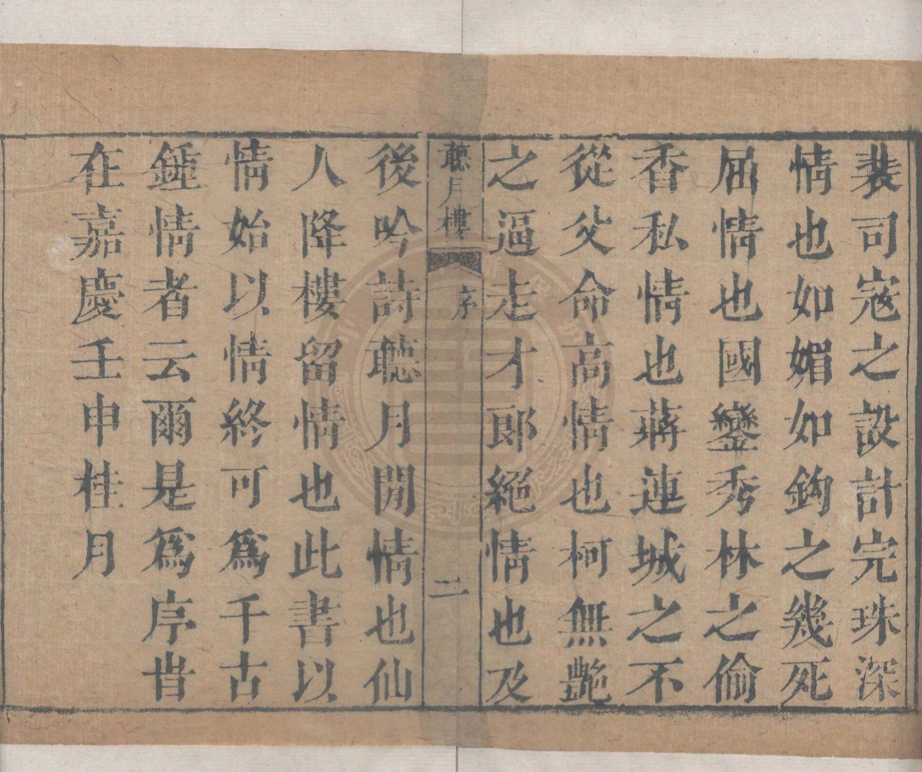 裴司寇之設計完珠深
情也如媚如鈎之幾死
屈情也國鑾秀林之偷
香私情也蔣連城之不
從父命高情也柯無艷
之逼走才郎絕情也及
聽月樓 序 二
後吟詩聽月閒情也仙
人降樓留情也此書以
情始以情終可爲千古
鍾情者云爾是爲序旹
在嘉慶壬申桂月